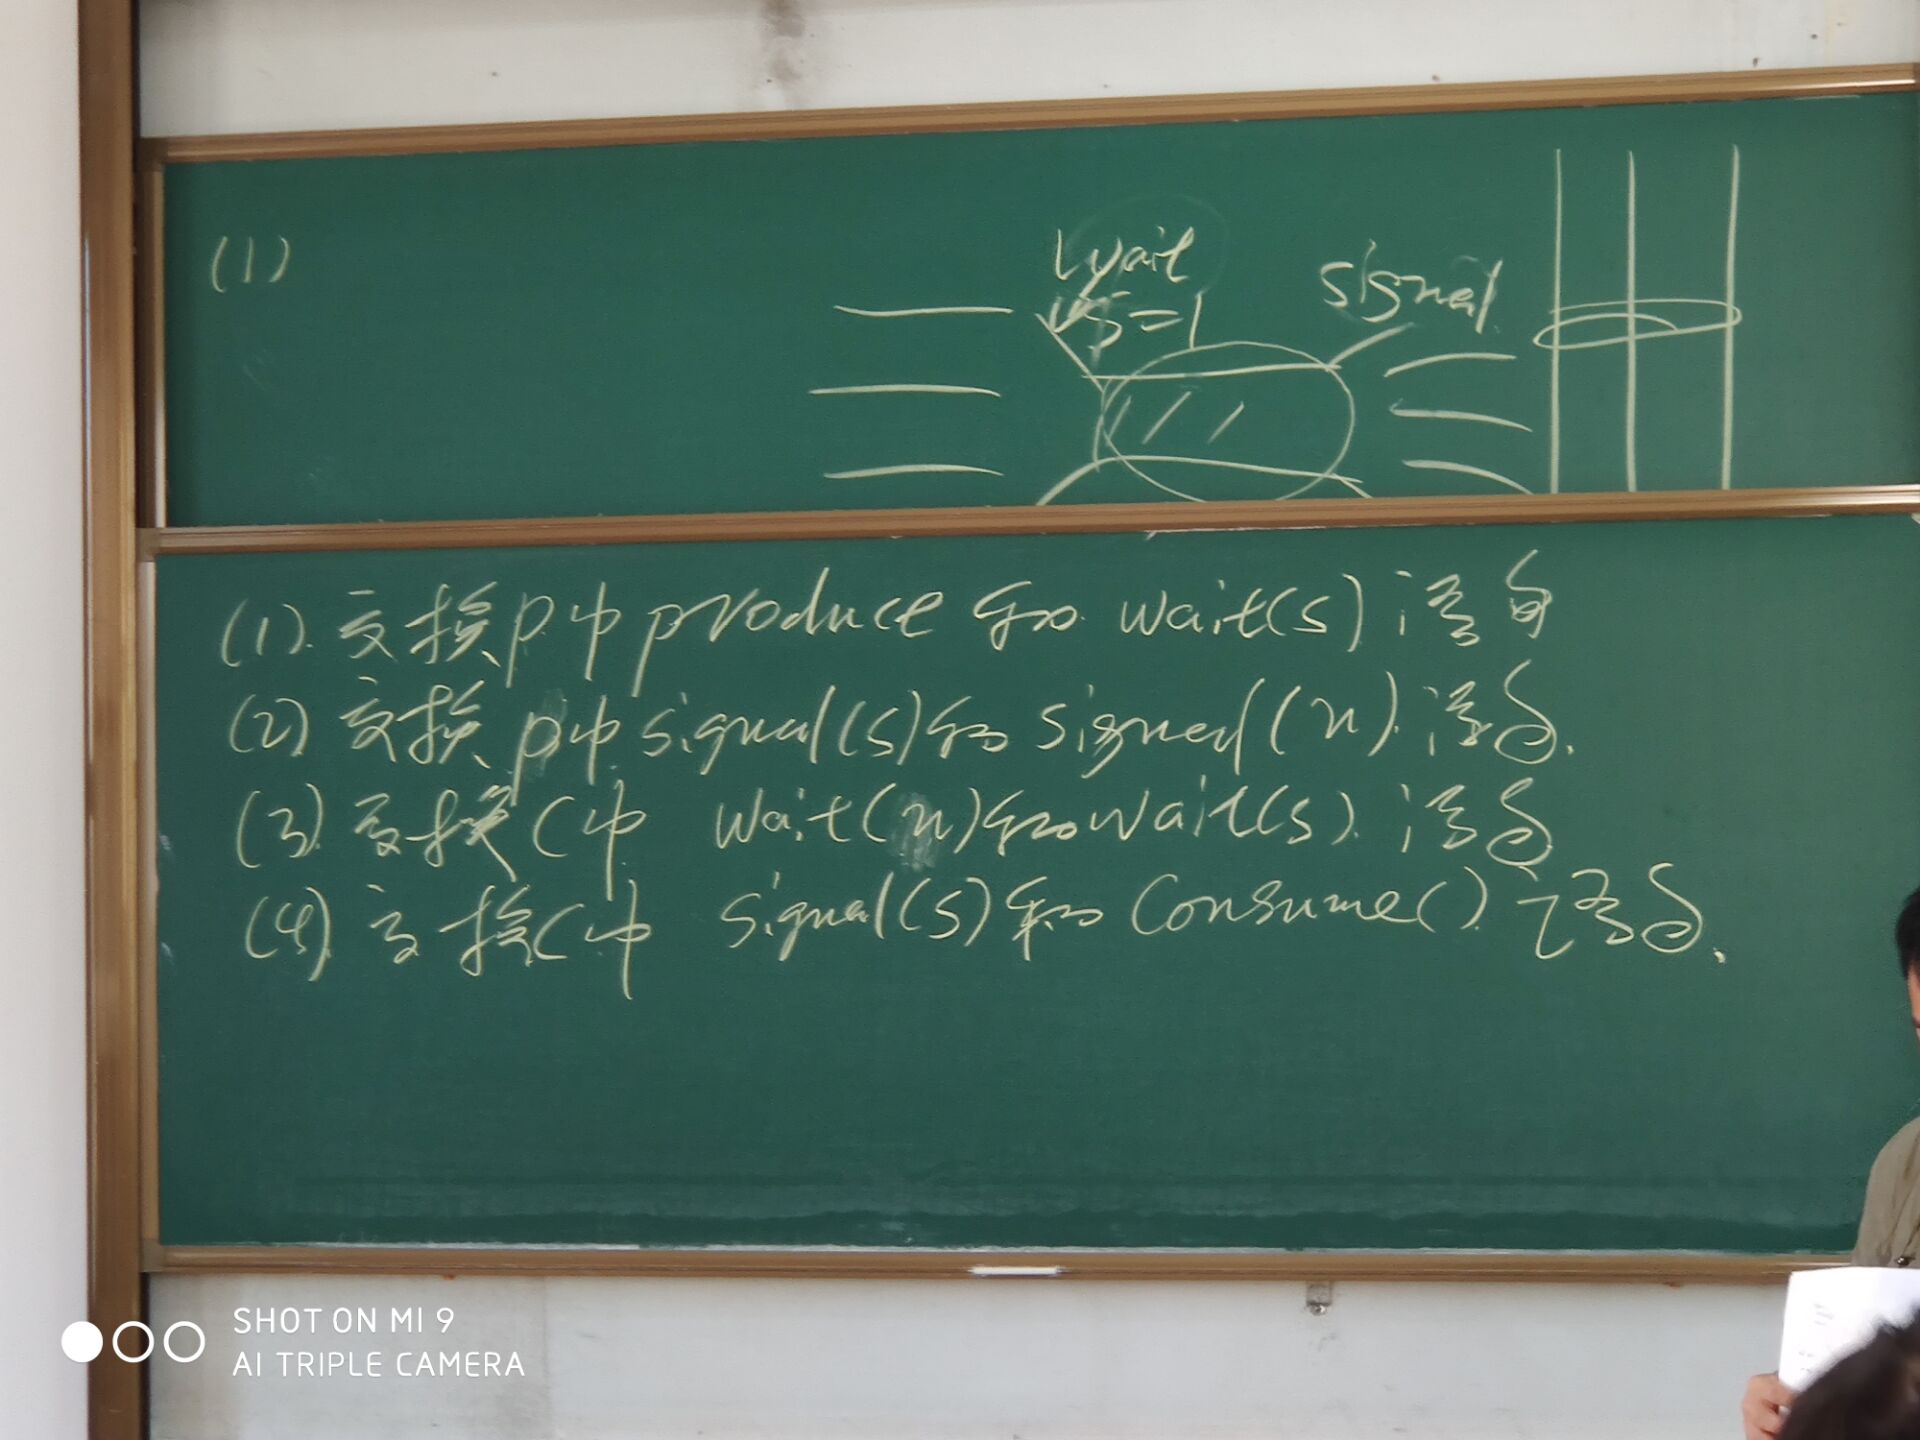 (1)
wait
s=1
signal
(1). 交换p中produce和 wait(s)语句
(2) 交换p中signal(s)和signal(n).语句.
(3) 交换C中 wait(n)和wait(s).语句
(4). 交换C中 signal(s)和Consume().语句.
SHOT ON MI 9
AI TRIPLE CAMERA